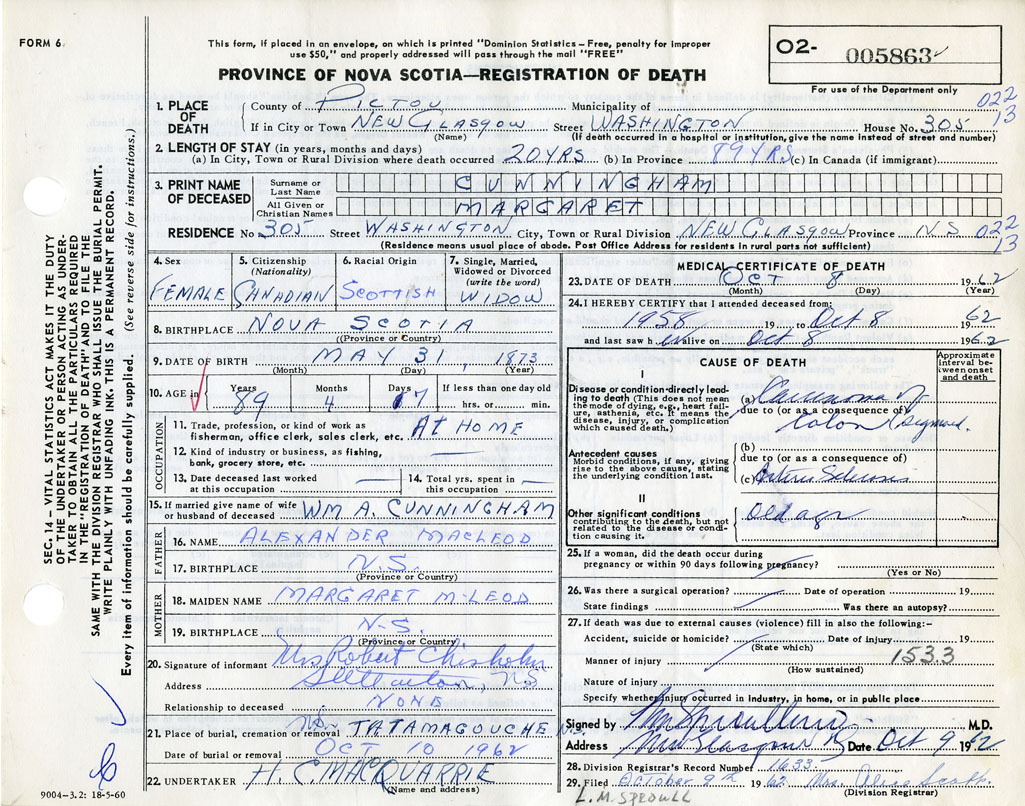 FORM 6
This form, if placed in an envelope, on which is printed "Dominion Statistics – Free, penalty for improper
use $50," and properly addressed will pass through the mail "FREE"
PROVINCE OF NOVA SCOTIA—REGISTRATION OF DEATH
02- 005863
For use of the Department only
1. PLACE OF DEATH
County of PICTOU Municipality of
022
13
If in City or Town NEW GLASGOW Street WASHINGTON House No. 305
(Name) (If death occurred in a hospital or institution, give the name instead of street and number)
2. LENGTH OF STAY (in years, months and days)
(a) In City, Town or Rural Division where death occurred 20 YRS (b) In Province 89 YRS (c) In Canada (if immigrant)
3. PRINT NAME OF DECEASED
Surname or Last Name CUNNINGHAM
All Given or Christian Names MARGARET
RESIDENCE No. 305 Street WASHINGTON City, Town or Rural Division NEW GLASGOW Province N S 022
13
(Residence means usual place of abode. Post Office Address for residents in rural parts not sufficient)
4. Sex
FEMALE
5. Citizenship (Nationality)
CANADIAN
6. Racial Origin
SCOTTISH
7. Single, Married, Widowed or Divorced (write the word)
WIDOW
8. BIRTHPLACE NOVA SCOTIA
(Province or Country)
9. DATE OF BIRTH MAY 31, 1873
(Month) (Day) (Year)
10. AGE in Years 89 Months 4 Days 7 If less than one day old hrs. or min.
OCCUPATION
11. Trade, profession, or kind of work as
fisherman, office clerk, sales clerk, etc. AT HOME
12. Kind of industry or business, as fishing,
bank, grocery store, etc.
13. Date deceased last worked
at this occupation
14. Total yrs. spent in
this occupation
15. If married give name of wife
or husband of deceased WM A. CUNNINGHAM
FATHER
16. NAME ALEXANDER MACLEOD
17. BIRTHPLACE N.S.
(Province or Country)
MOTHER
18. MAIDEN NAME MARGARET McLEOD
19. BIRTHPLACE N-S.
(Province or Country)
20. Signature of informant Mrs Robert Chisholm
Address Stellarton, N S
Relationship to deceased NONE
21. Place of burial, cremation or removal TATAMAGOUCHE N.S.
Date of burial or removal OCT 10 1962
22. UNDERTAKER H. C. MACQUARRIE
(Name and address)
9004-3.2: 18-5-60
MEDICAL CERTIFICATE OF DEATH
23. DATE OF DEATH OCT 8 1962
(Month) (Day) (Year)
24. I HEREBY CERTIFY that I attended deceased from:
1958 19 to Oct 8 1962
and last saw h er alive on Oct 8 1962
CAUSE OF DEATH
Approximate interval between onset and death
I
Disease or condition directly leading to death (This does not mean the mode of dying, e.g., heart failure, asthenia, etc. It means the disease, injury, or complication which caused death).
(a) Carcinoma of
due to (or as a consequence of)
Colon (Sigmoid.
Antecedent causes
Morbid conditions, if any, giving rise to the above cause, stating the underlying condition last.
(b)
due to (or as a consequence of)
(c) Arterio Sclerosis
II
Other significant conditions
contributing to the death, but not related to the disease or condition causing it.
Old age
25. If a woman, did the death occur during
pregnancy or within 90 days following pregnancy?
(Yes or No)
26. Was there a surgical operation? Date of operation 19
State findings Was there an autopsy?
27. If death was due to external causes (violence) fill in also the following:-
Accident, suicide or homicide? Date of injury 19
(State which)
153.3
Manner of injury
(How sustained)
Nature of injury
Specify whether injury occurred in industry, in home, or in public place
Signed by M.D.
Address New Glasgow Date Oct 9 1962
28. Division Registrar's Record Number 1633
29. Filed October 9th 1962 Mrs.
(Division Registrar)
L. M. SPROULL
SEC. 14 – VITAL STATISTICS ACT MAKES IT THE DUTY
OF THE UNDERTAKER OR PERSON ACTING AS UNDER-
TAKER TO OBTAIN ALL THE PARTICULARS REQUIRED
IN THE "REGISTRATION OF DEATH" AND TO FILE THE
SAME WITH THE DIVISION REGISTRAR WHO SHALL ISSUE THE BURIAL PERMIT.
WRITE PLAINLY WITH UNFADING INK. THIS IS A PERMANENT RECORD.
Every item of information should be carefully supplied. (See reverse side for instructions.)